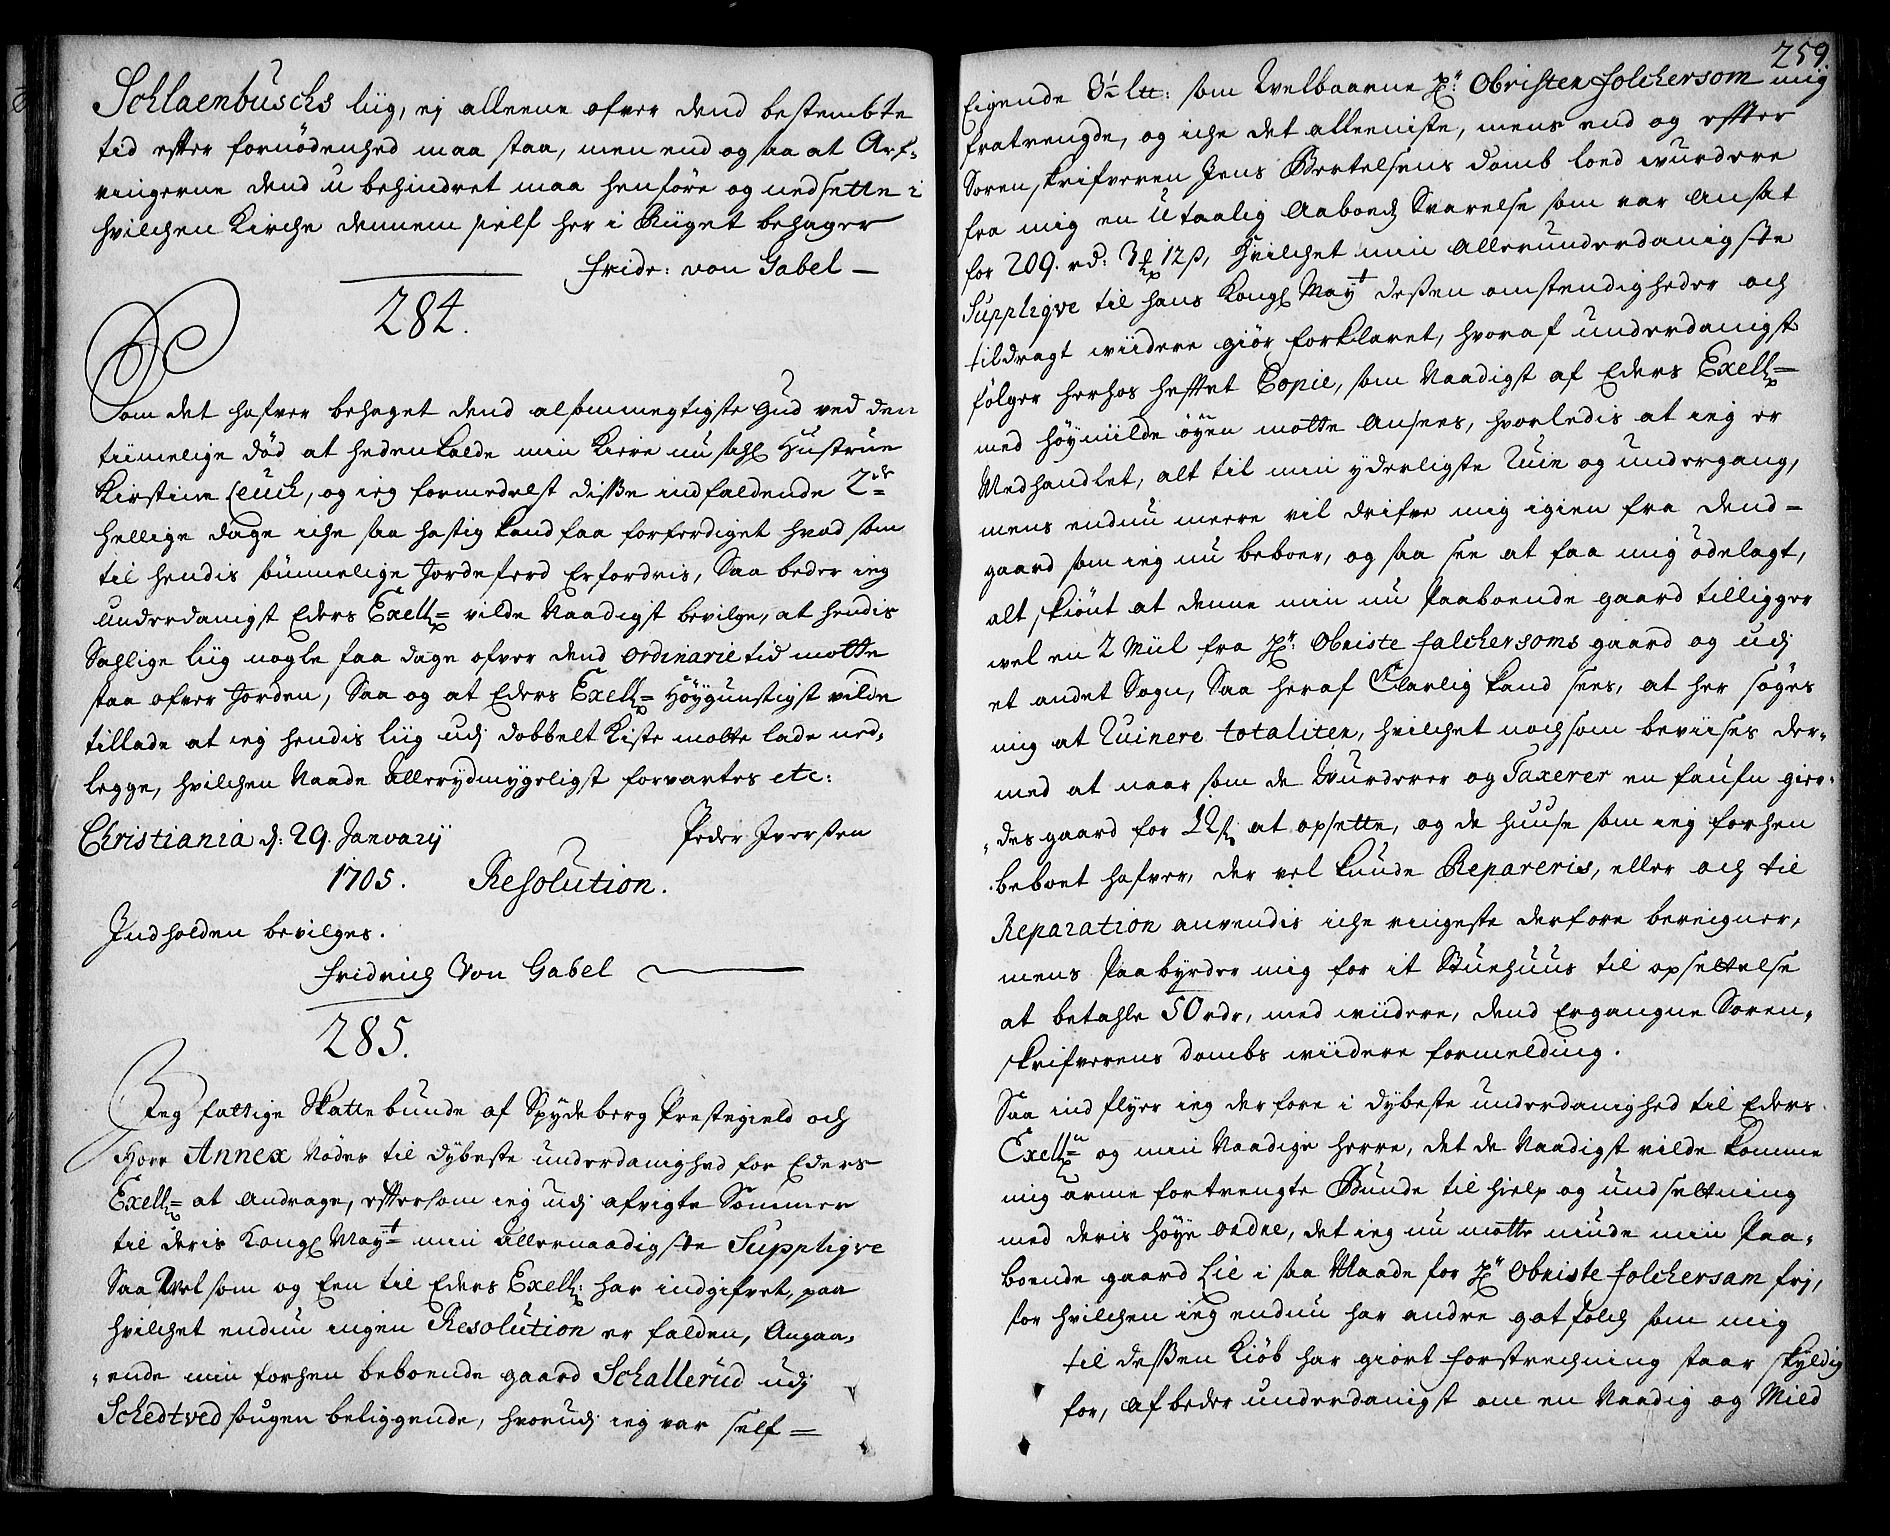 Schlaenbuschs liig, ej alleene ofver dend bestembte
tid efter fornödenhed maa staa, men end og saa at Arf-
vingerne dend u behindret maa henföre og nedsette i
hvilchen Kirche dennem sielf her i Riiget behager
Frider: von Gabel
284.
Som det hafver behaget dend alsommegtigste Gud ved den
tiimelige död at hedenkalde min kiere nu sahl Hustrue
Kirstine Leuch, og ieg formedelst disse indfaldende 2de
hellige dage iche saa hastig kand faa forferdiget hvad som
til hendis sömmelige Jordeferd Erfordris, Saa beder ieg
underdanigst Eders Exell= vilde Naadigst bevilge, at hendis
Sahlige liig nogle faa dage ofver dend ordinarie tid motte
staa ofver Jorden, Saa og at Eders Exell= Höygunstigst vilde
tillade at ieg hendis liig udj dobbelt Kiste motte lade ned-
legge, hvilchen Naade allerydmygeligst forvartes etc:
Christiania d: 29. Januarij Peder Iversen
1705. Resolution.
Indholden bevilges.
Fridrich Von Gabel
285.
Jeg fattige Skattebunde af Spydeberg Prestegield och
Hore Annex Nödes til dybeste underdanighed for Eders
Exell= at andrage, eftersom ieg udj afvigte Sommer
til deris Kongl Mayt= min allernaadigste Suppliqve
Saa Vel som og Een til Eders Exell: har indgifvet, paa
hvilchet endnu ingen Resolution er falden, Angaa-
ende min forhen beboende gaard Schallerud udj
Schedtved sougen beliggende, hvorudj ieg var self=
259.
Eigende 3½ ltt: som Welbaarne Hr: Obristen Folchersom mig
fratrengde, og iche det alleeniste, mens end og efter
Sorenskrifveren Jens Bertelsens domb loed wurdere
fra mig en Utaalig Aaboeds Svarelse som var Ansat
for 209. rd: 3 12 ß, Hvilchet min allerunderdanigste
Suppliqve til hans Kongl Mayt dessen omstendigheder och
tildragt wiidere giör forklaret, hvoraf underdanigst
fölger herhos heftet Copie, som Naadigst af Eders Exell=
med höymilde öyen motte Ansees, hvorledis at ieg er
Medhandlet, alt til min yderligste Ruin og undergang,
mens endnu meere vil drifve mig igien fra dend=
gaard som ieg nu beboer, og saa see at faa mig ödelagt,
alt skiönt at denne min nu Paaboende gaard tilligger
wel en 2 Miil fra Hr: Obriste Falchersoms gaard og udj
et andet Sogn, Saa heraf Clarlig kand sees, at her söges
mig at Ruinere totaliter, hvilchet nochsom beviises der-
med at naar som de Wurderer og Taxerer en faufn gier-
des gaard for 12 ß at opsette, og de huuse som ieg forhen
beboet hafver, der vel kunde Repareris, eller och til
Reparation anvendis iche ringeste derfore bereigner,
mens Paabyrder mig for it Stuehuus til opsettelse
at betahle 50 rdr, med wiidere, dend Ergangne Soren-
skrifverens dombs wiidere formelding.
Saa indflyer ieg derfore i dybeste underdanighed til Eders
Exell= og min Naadige herre, det de Naadigst vilde komme
mig arme fortrengte Bunde til hielp og undsetning
med deris höye ordre, det ieg nu motte niude min Paa-
boende gaard Lie i saa Maade for Hr Obriste Folchersam frj,
for hvilchen ieg endnu har andre got folch som mig
til dessen Kiöb har giort forstrechning staar skyldig
for, afbeder underdanigst om en Naadig og Mild